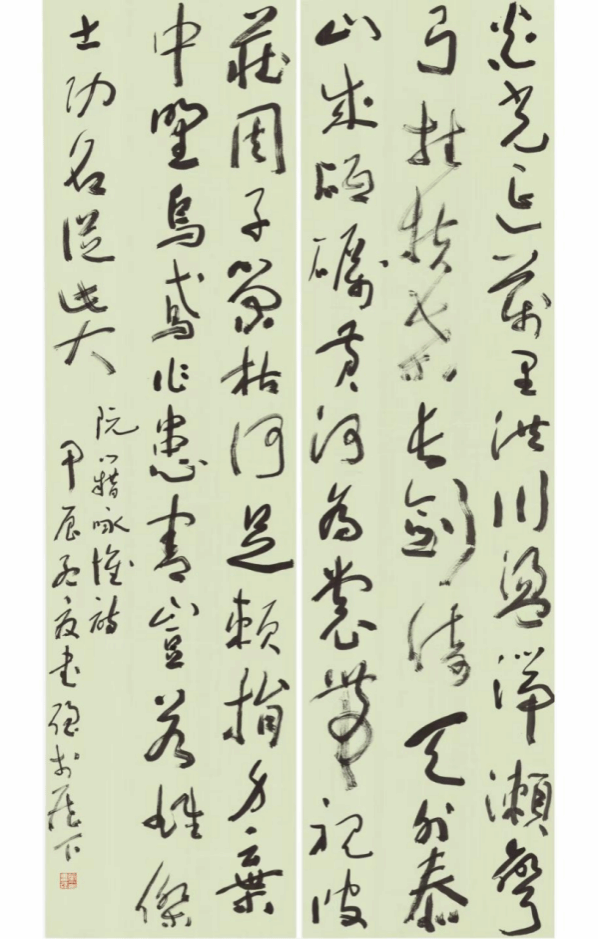 炎光延萬里洪川盪湍瀨彎
弓挂扶桑長劍倚天外泰
山成砥礪黃河為裳帶視彼
莊周子榮枯何足賴捐身棄
中野烏鳶作患害豈若雄傑
士功名從此大
阮籍咏懷詩
甲辰